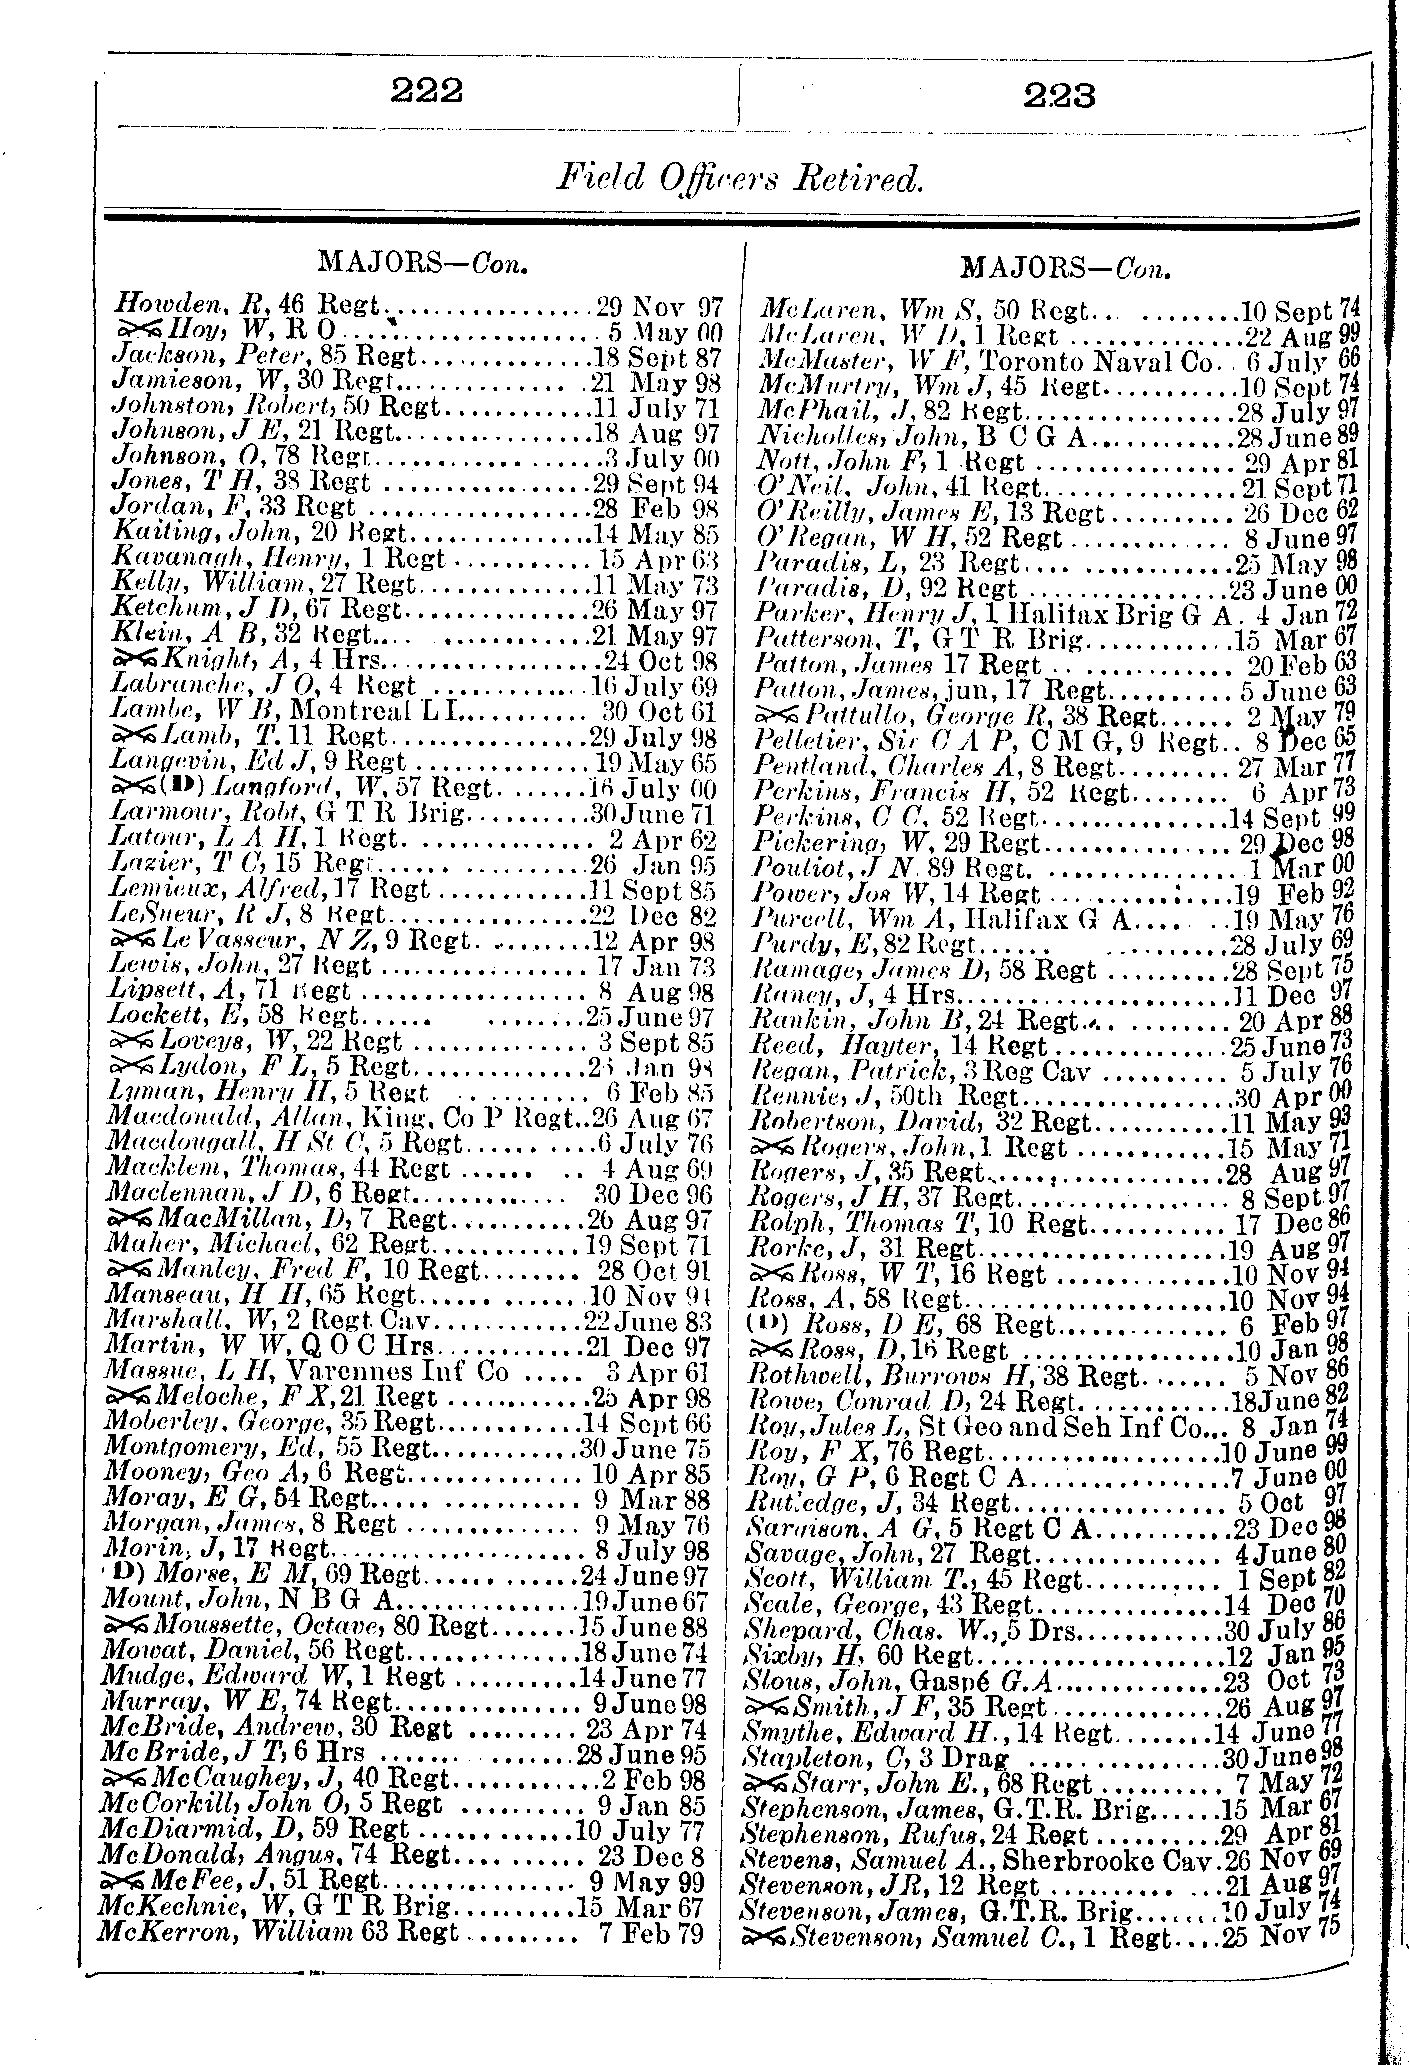 222
223
Field Officers Retired.
MAJORS—Con.
Howden, R, 46 Regt.................29 Nov 97
Hoy, W, R O.....................5 May 00
Jackson, Peter, 85 Regt.............18 Sept 87
Jamieson, W, 30 Regt................21 May 98
Johnston, Robert, 50 Regt............11 July 71
Johnson, J E, 21 Regt...............18 Aug 97
Johnson, O, 78 Regt.................3 July 00
Jones, T H, 38 Regt ................29 Sept 94
Jordan, F, 33 Regt .................28 Feb 98
Kaiting, John, 20 Regt..............14 May 85
Kavanagh, Henry, 1 Regt ............15 Apr 63
Kelly, William, 27 Regt.............11 May 73
Ketchum, J D, 67 Regt...............26 May 97
Klein, A B, 32 Regt.... ............21 May 97
Knight, A, 4 Hrs..................24 Oct 98
Labranche, J O, 4 Regt .............16 July 69
Lambe, W B, Montreal L I........... 30 Oct 61
Lamb, T. 11 Regt..................29 July 98
Langevin, Ed J, 9 Regt .............19 May 65
(D) Langford, W, 57 Regt........16 July 00
Larmour, Robt, G T R Brig..........30 June 71
Latour, L A H, 1 Regt. ............. 2 Apr 62
Lazier, T C, 15 Regt...... .........26 Jan 95
Lemieux, Alfred, 17 Regt ...........11 Sept 85
LeSueur, R J, 8 Regt................22 Dec 82
Le Vasseur, N Z, 9 Regt. .........12 Apr 98
Lewis, John, 27 Regt ............... 17 Jan 73
Lipsett, A, 71 Regt ................. 8 Aug 98
Lockett, E, 58 Regt...... ........25 June 97
Loveys, W, 22 Regt ............... 3 Sept 85
Lydon, F L, 5 Regt................ Jan 98
Lyman, Henry H, 5 Regt .......... 6 Feb 85
Macdonald, Allan, King, Co P Regt..26 Aug 67
Macdougall, H St C, 5 Regt..........6 July 76
Macklem, Thomas, 44 Regt ...... .. 4 Aug 69
Maclennan, J D, 6 Regt............. 30 Dec 96
MacMillan, D, 7 Regt...........26 Aug 97
Maher, Michael, 62 Regt............19 Sept 71
Manley, Fred F, 10 Regt........ 28 Oct 91
Manseau, H H, 65 Regt...... .......10 Nov 94
Marshall, W, 2 Regt Cav............22 June 83
Martin, W W, Q O C Hrs............21 Dec 97
Massue, L H, Varennes Inf Co ..... 3 Apr 61
Meloche, F X, 21 Regt ...........25 Apr 98
Moberley, George, 35 Regt...........14 Sept 66
Montgomery, Ed, 55 Regt............30 June 75
Mooney, Geo A, 6 Regt.............. 10 Apr 85
Moray, E G, 54 Regt..... ........... 9 Mar 88
Morgan, James, 8 Regt .............. 9 May 76
Morin, J, 17 Regt..................... 8 July 98
D) Morse, E M, 69 Regt...... .......24 June 97
Mount, John, N B G A...............19 June 67
Moussette, Octave, 80 Regt.......15 June 88
Mowat, Daniel, 56 Regt..............18 June 74
Mudge, Edward W, 1 Regt ...........14 June 77
Murray, W E, 74 Regt................ 9 June 98
McBride, Andrew, 30 Regt ......... 23 Apr 74
McBride, J T, 6 Hrs ...... .........28 June 95
McCaughey, J, 40 Regt............2 Feb 98
McCorkill, John O, 5 Regt .......... 9 Jan 85
McDiarmid, D, 59 Regt .............10 July 77
McDonald, Angus, 74 Regt.... ...... 23 Dec 8
McFee, J, 51 Regt................ 9 May 99
McKechnie, W, G T R Brig...........15 Mar 67
McKerron, William 63 Regt.......... 7 Feb 79
MAJORS—Con.
McLaren, Wm S, 50 Regt... .........10 Sept 74
McLaren, W D, 1 Regt ..............22 Aug 99
McMaster, W F, Toronto Naval Co.. 6 July 66
McMurtry, Wm J, 45 Regt...........10 Sept 74
McPhail, J, 82 Regt..................28 July 97
Nicholles, John, B C G A............28 June 89
Nott, John F, 1 Regt ................ 29 Apr 81
O'Neil, John, 41 Regt................21 Sept 71
O'Reilly, James E, 13 Regt.......... 26 Dec 62
O'Regan, W H, 52 Regt ............. 8 June 97
Paradis, L, 23 Regt.... .............25 May 98
Paradis, D, 92 Regt ................23 June 00
Parker, Henry J, 1 Halifax Brig G A. 4 Jan 72
Patterson, T, G T R Brig............15 Mar 67
Patton, James 17 Regt .. ............ 20 Feb 63
Patton, James, jun, 17 Regt.......... 5 June 63
Pattullo, George R, 38 Regt...... 2 May 79
Pelletier, Sir C A P, C M G, 9 Regt.. 8 Dec 65
Pentland, Charles A, 8 Regt......... 27 Mar 77
Perkins, Francis H, 52 Regt........ 6 Apr 73
Perkins, C C, 52 Regt................14 Sept 99
Pickering, W, 29 Regt............... 29 Dec 98
Pouliot, J N. 89 Regt. ............... 1 Mar 00
Power, Jos W, 14 Regt ..............19 Feb 92
Purcell, Wm A, Halifax G A.... ..19 May 76
Purdy, E, 82 Regt...... ..........28 July 69
Ramage, James D, 58 Regt ..........28 Sept 75
Raney, J, 4 Hrs......................11 Dec 97
Rankin, John B, 24 Regt... ......... 20 Apr 88
Reed, Hayter, 14 Regt..............25 June 73
Regan, Patrick, 3 Reg Cav .......... 5 July 76
Rennie, J, 50th Regt.................30 Apr 00
Robertson, David, 32 Regt...........11 May 93
Rogers, John, 1 Regt ............15 May 71
Rogers, J, 35 Regt...................28 Aug 97
Rogers, J H, 37 Regt................. 8 Sept 97
Rolph, Thomas T, 10 Regt........... 17 Dec 86
Rorke, J, 31 Regt....................19 Aug 97
Ross, W T, 16 Regt ..............10 Nov 94
Ross, A, 58 Regt.....................10 Nov 94
(D) Ross, D E, 68 Regt.............. 6 Feb 97
Ross, D, 16 Regt .................10 Jan 98
Rothwell, Burrows H, 38 Regt....... 5 Nov 86
Rowe, Conrad D, 24 Regt............18 June 82
Roy, Jules L, St Geo and Seh Inf Co... 8 Jan 74
Roy, F X, 76 Regt...................10 June 99
Roy, G P, 6 Regt C A................7 June 00
Rutledge, J, 34 Regt................. 5 Oct 97
Sargison, A G, 5 Regt C A...........23 Dec 98
Savage, John, 27 Regt............... 4 June 80
Scott, William T., 45 Regt........... 1 Sept 82
Seale, George, 43 Regt..............14 Dec 70
Shepard, Chas. W., 5 Drs............30 July 86
Sixby, H, 60 Regt....................12 Jan 95
Slous, John, Gaspé G.A..............23 Oct 73
Smith, J F, 35 Regt..............26 Aug 97
Smythe, Edward H., 14 Regt........14 June 77
Stapleton, C, 3 Drag ................30 June 98
Starr, John E., 68 Regt .......... 7 May 72
Stephenson, James, G.T.R. Brig......15 Mar 67
Stephenson, Rufus, 24 Regt..........29 Apr 81
Stevens, Samuel A., Sherbrooke Cav.26 Nov 69
Stevenson, JR, 12 Regt .......... ...21 Aug 97
Stevenson, James, G.T.R. Brig.......10 July 74
Stevenson, Samuel C., 1 Regt....25 Nov 75